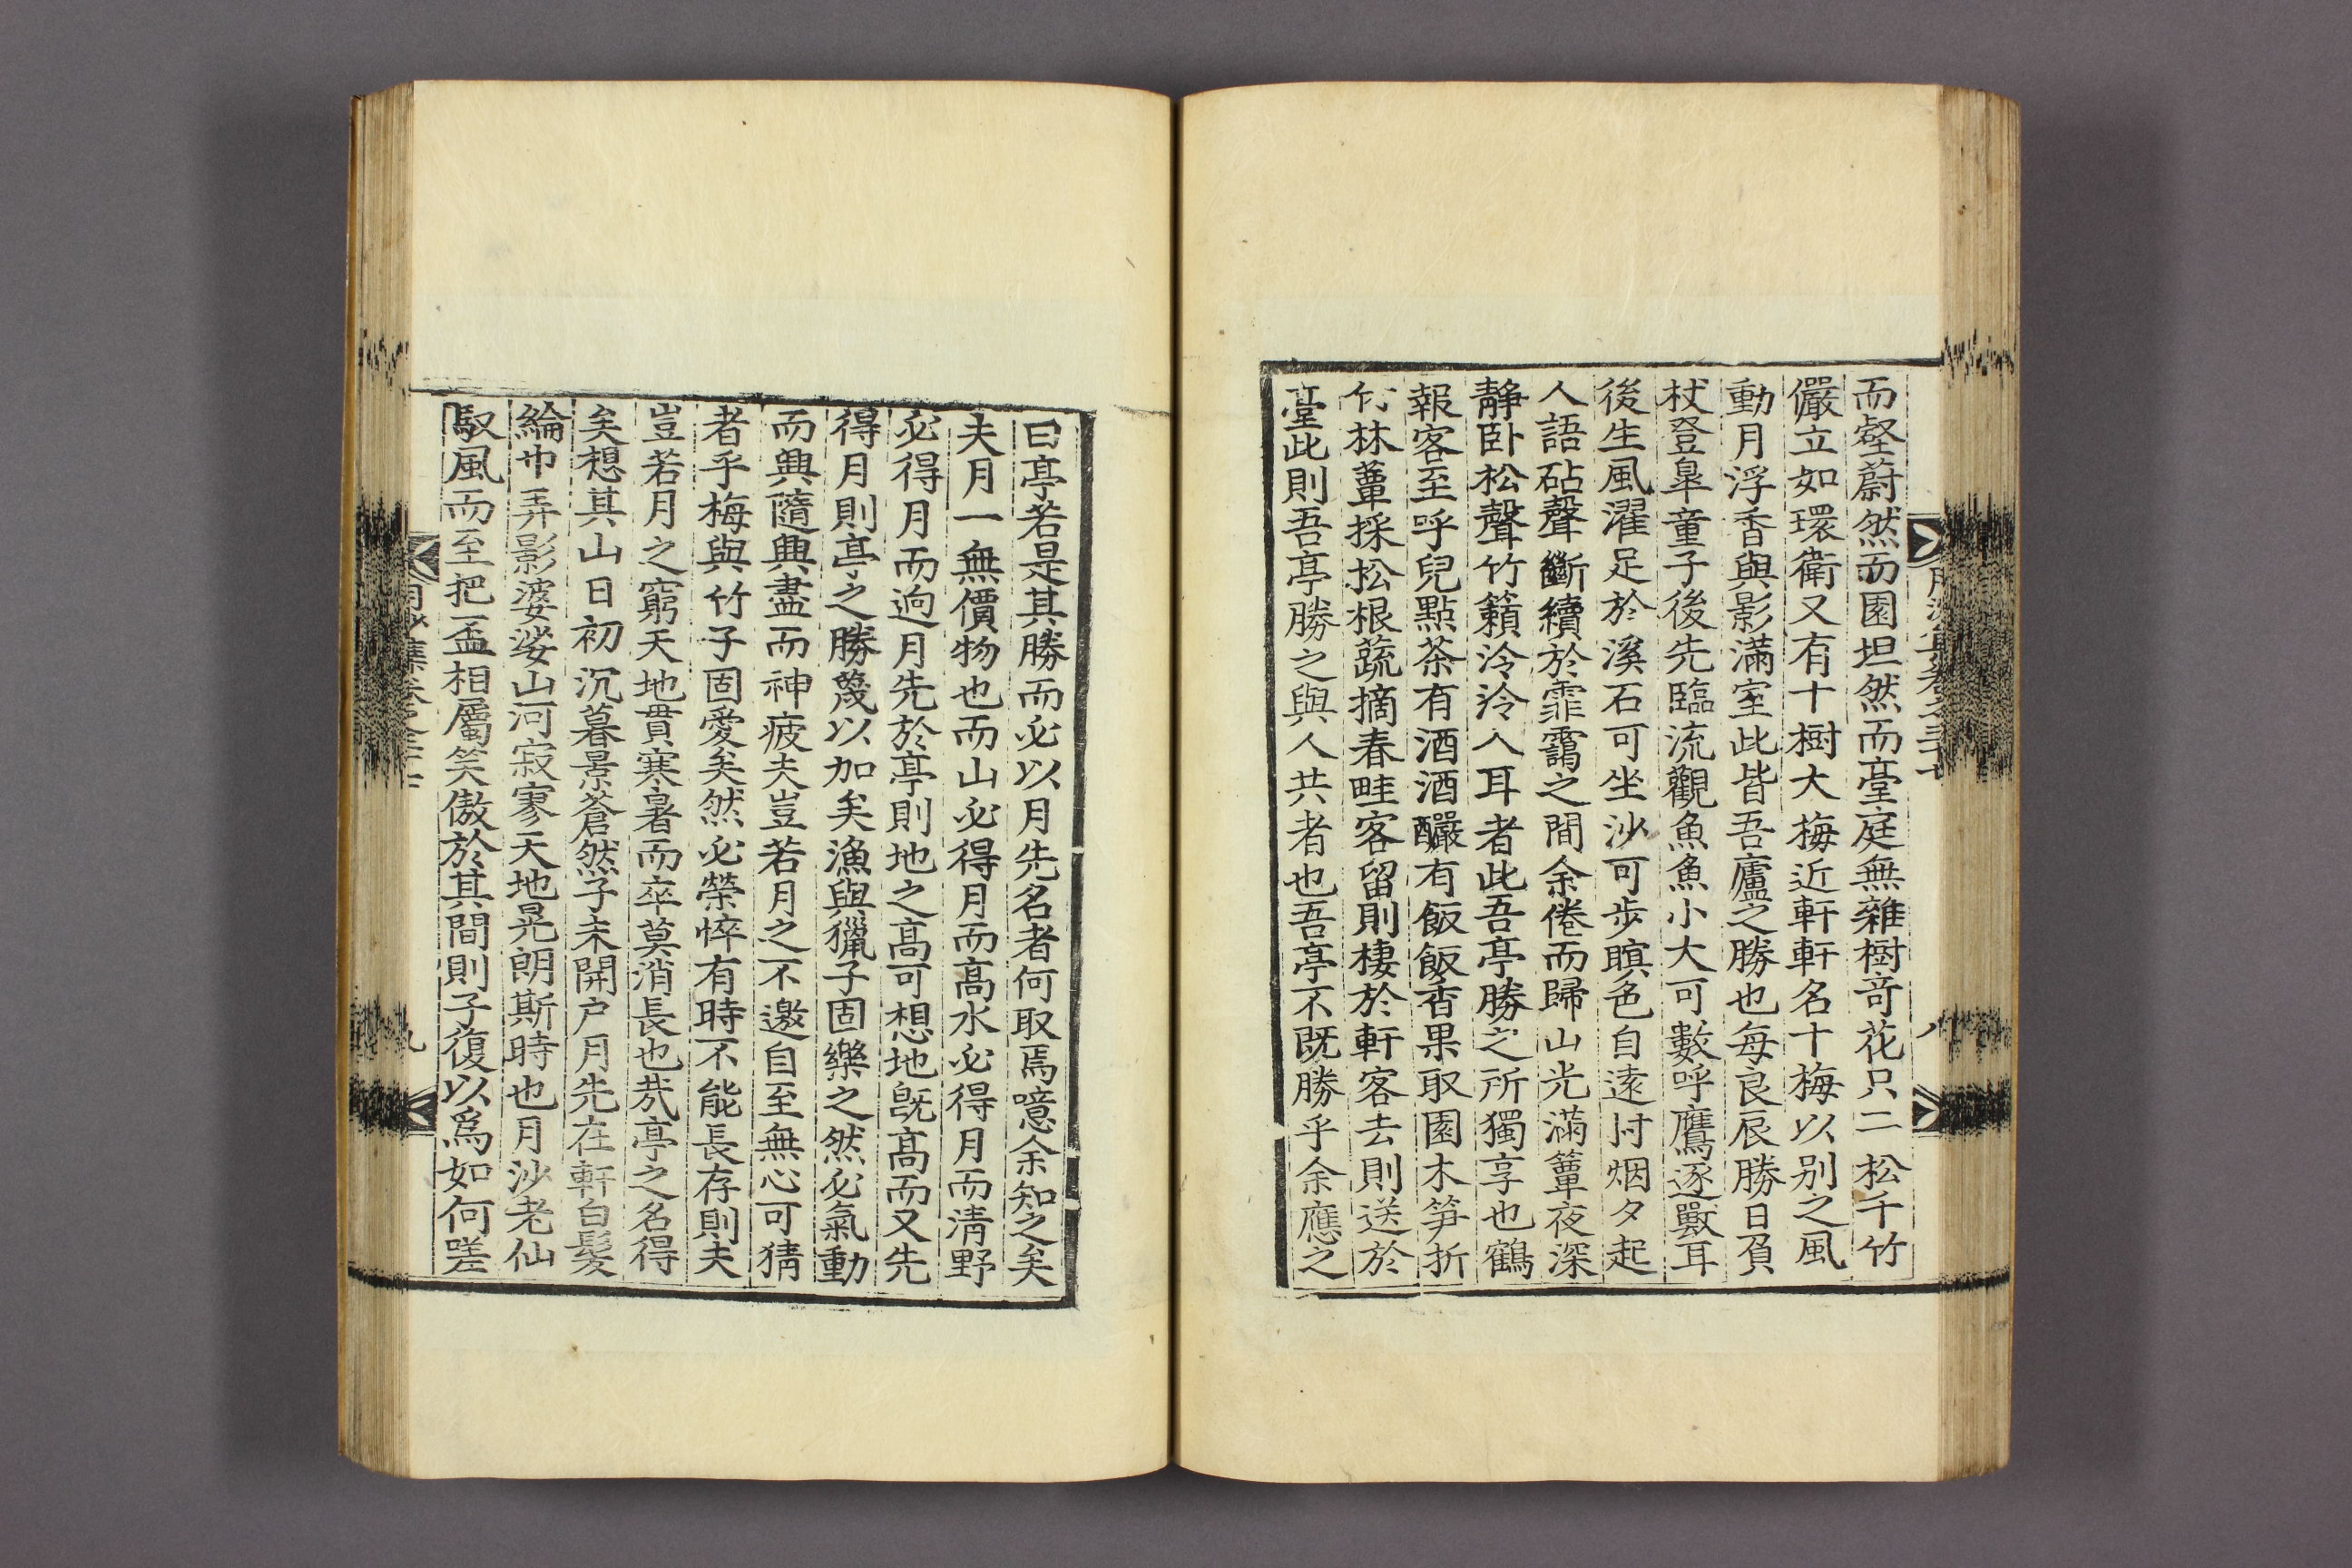 而壑蔚然而園坦然而臺庭無雜樹竒花只二松千竹
儼立如環衛又有十樹大梅近軒軒名十梅以别之風
動月浮香與影滿室此皆吾廬之勝也每良辰勝日負
杖登臯童子後先臨流觀魚魚小大可數呼鷹逐獸耳
後生風濯足於溪石可坐沙可步暝色自遠村烟夕起
人語砧聲斷續於霏靄之間余倦而歸山光滿簟夜深
靜卧松聲竹籟泠泠入耳者此吾亭勝之所獨享也鶴
報客至呼兒點茶有酒酒釅有飯飯香果取園木笋折
竹林蕈採松根蔬摘春畦客留則棲於軒客去則送於
臺此則吾亭勝之與人共者也吾亭不既勝乎余應之
曰亭若是其勝而必以月先名者何取焉噫余知之矣
夫月一無價物也而山必得月而髙水必得月而淸野
必得月而逈月先於亭則地之髙可想地旣髙而又先
得月則亭之勝蔑以加矣漁與獵子固樂之然必氣動
而興隨興盡而神疲夫豈若月之不邀自至無心可猜
者乎梅與竹子固愛矣然必榮悴有時不能長存則夫
豈若月之窮天地貫寒暑而卒莫消長也㢤亭之名得
矣想其山日初沉暮景蒼然子未開户月先在軒白髮
綸巾弄影婆娑山河寂寥天地晃朗斯時也月沙老仙
馭風而至把一盃相屬笑傲於其間則子復以爲如何嗟
月沙集卷之三十七
八
月沙集卷之三十七
九